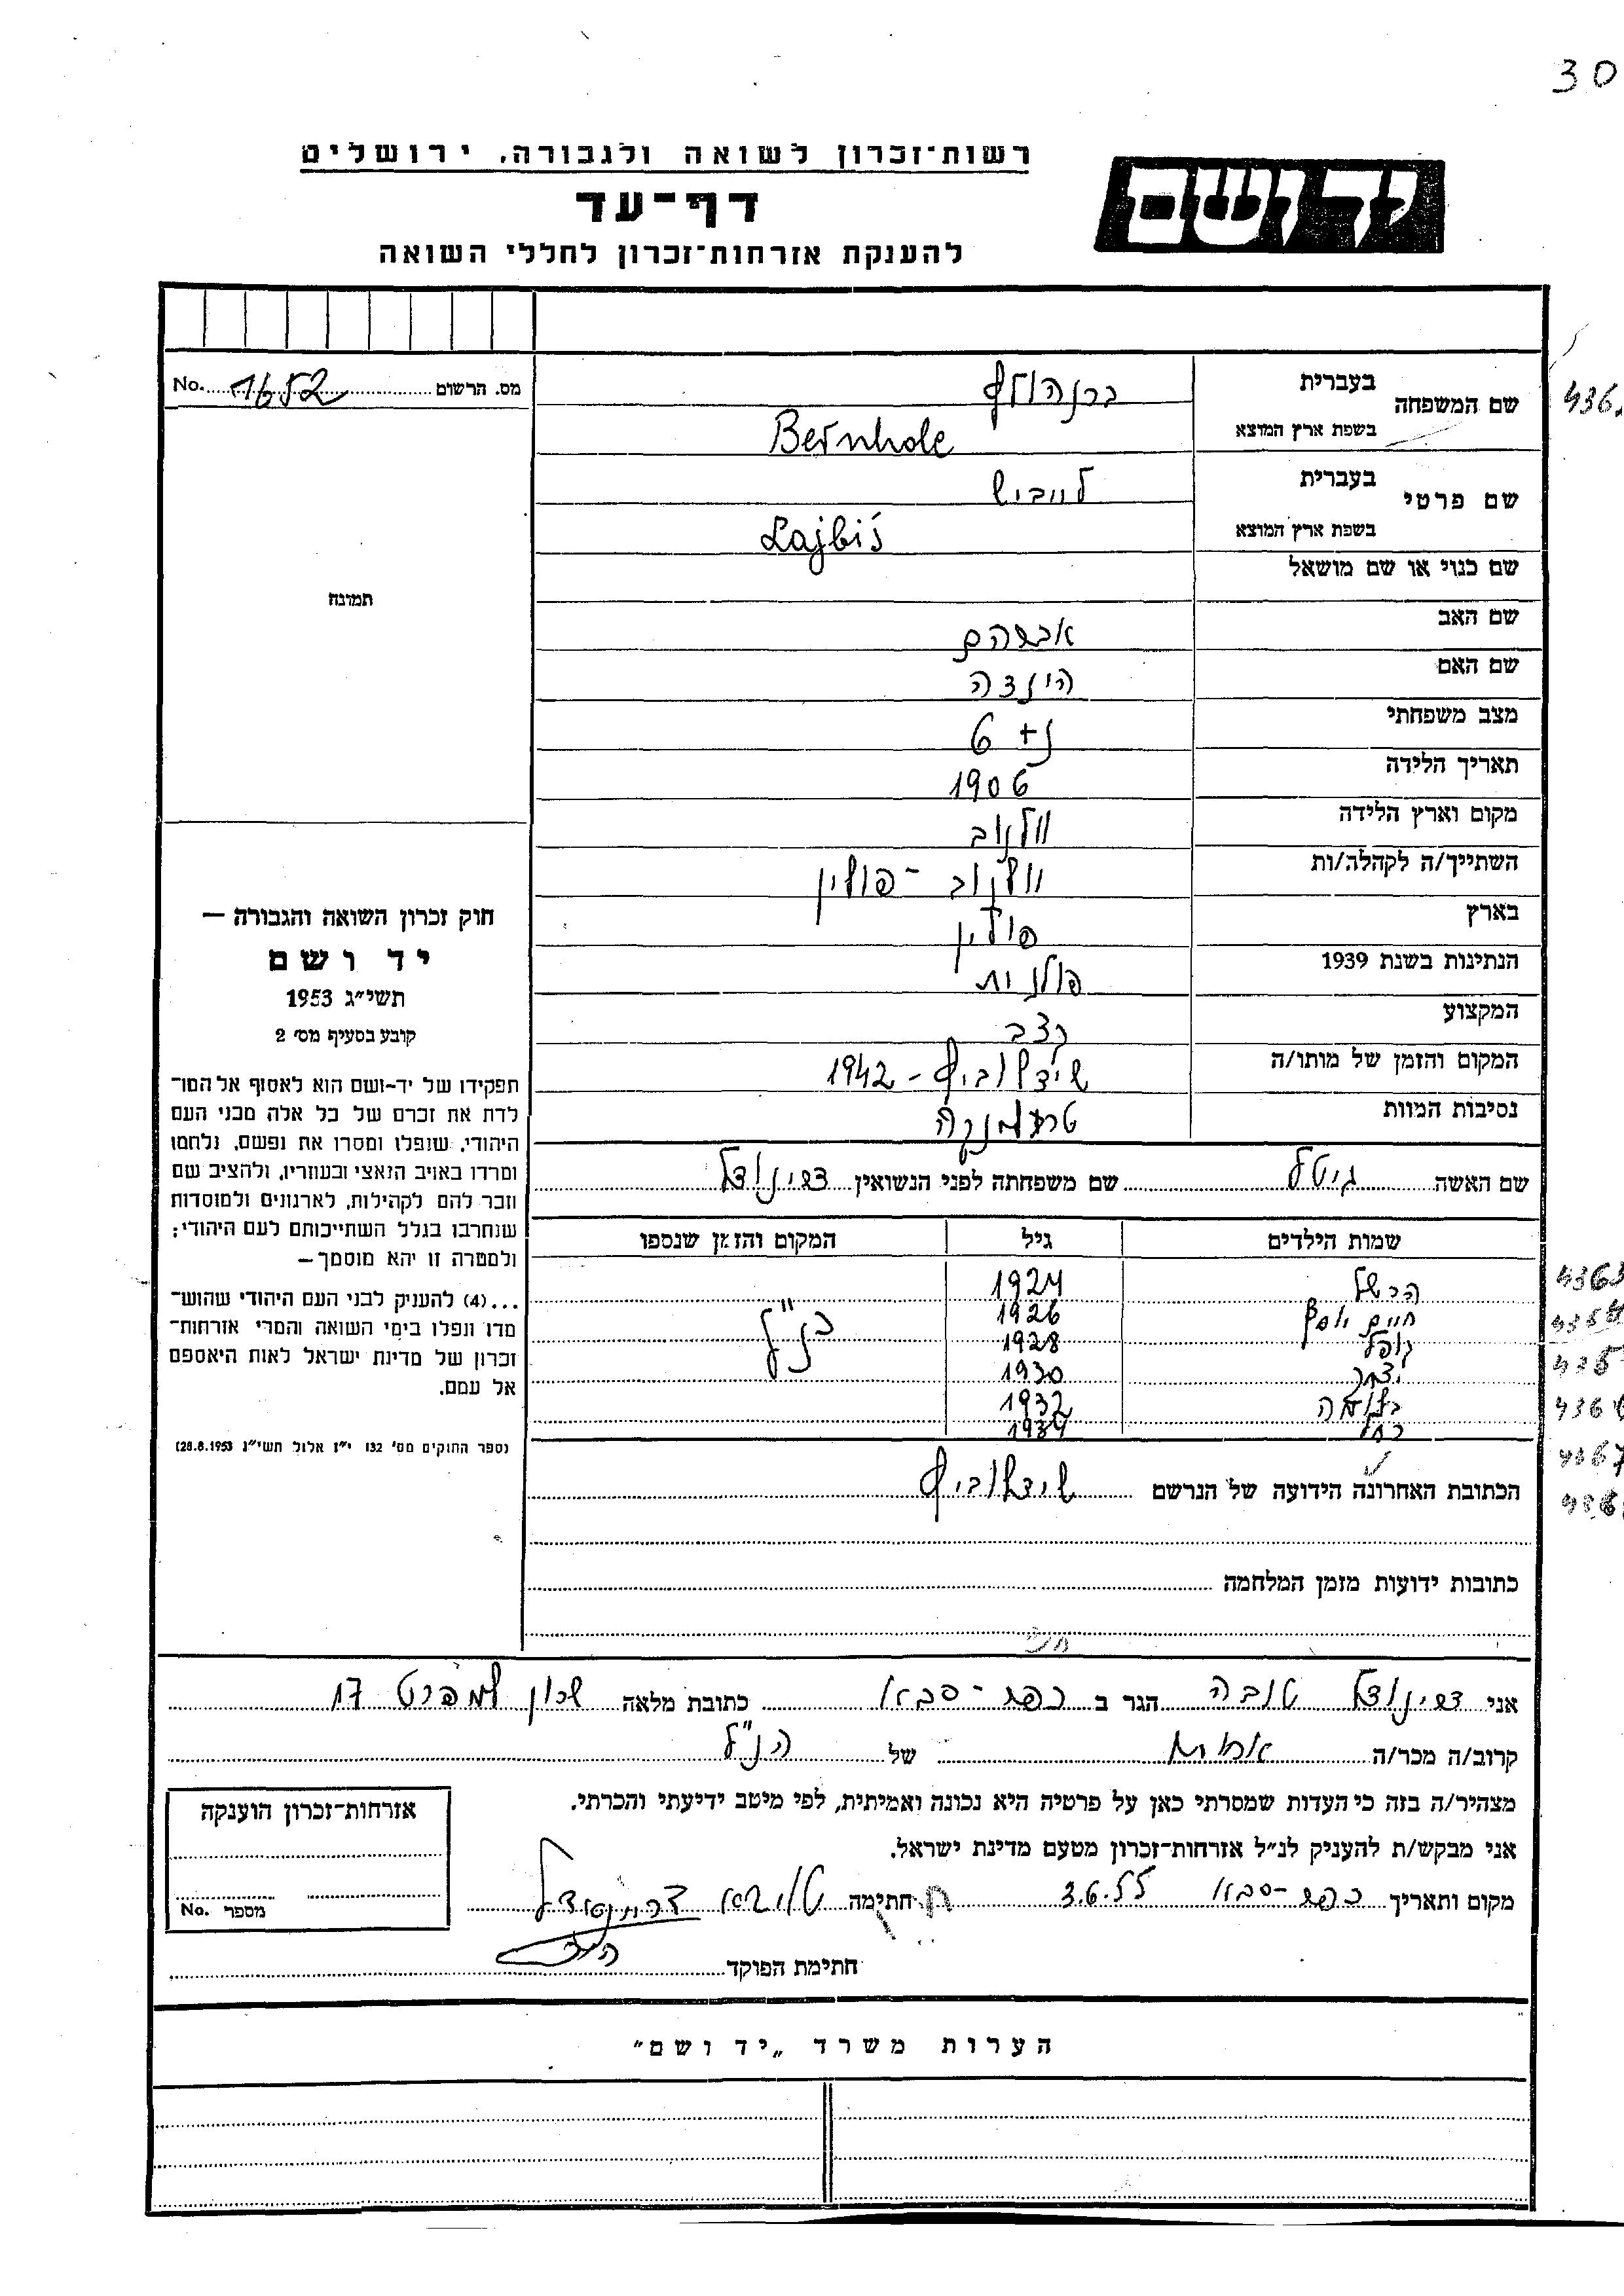 30
רשות־זכרון לשואה ולגבורה, ירושלים
יד ושם
דף־עד
להענקת אזרחות־זכרון לחללי השואה
מס. הרשום 1652 No.
שם המשפחה
בעברית ברנהולץ
בשפת ארץ המוצא Bernhole
436
שם פרטי
בעברית לייביש
בשפת ארץ המוצא Lajbiś
שם כנוי או שם מושאל
תמונה
שם האב אברהם
שם האם הינדה
מצב משפחתי נ + 6
תאריך הלידה 1906
מקום וארץ הלידה וולנוב
השתייך/ה לקהלה/ות וולנוב - פולין
בארץ פולין
הנתינות בשנת 1939 פולנית
המקצוע קצב
המקום והזמן של מותו/ה שידלוביץ - 1942
נסיבות המוות טרעבלינקה
חוק זכרון השואה והגבורה —
יד ושם
תשי״ג 1953
קובע בסעיף מס׳ 2
תפקידו של יד-ושם הוא לאסוף אל המו־
לדת את זכרם של כל אלה מבני העם
היהודי, שנפלו ומסרו את נפשם, נלחמו
ומרדו באויב הנאצי ובעוזריו, ולהציב שם
וזכר להם לקהילות, לארגונים ולמוסדות
שנחרבו בגלל השתייכותם לעם היהודי;
ולמטרה זו יהא מוסמך—
...(4) להעניק לבני העם היהודי שהוש־
מדו ונפלו בימי השואה והמרי אזרחות־
זכרון של מדינת ישראל לאות היאספם
אל עמם.
(ספר החוקים מס׳ 132 י״ז אלול תשי״ג 28.8.1953)
שם האשה גיטל שם משפחתה לפני הנשואין
שמות הילדים גיל המקום והזמן שנספו
הרשל 1924
חיים יוסף 1926 כנ״ל
1928
יצחק 1930
1932
רחל 1934
הכתובת האחרונה הידועה של הנרשם שידלוביץ
כתובות ידועות מזמן המלחמה
אני טובה הגר ב כפר - סבא כתובת מלאה שכון 17
קרוב/ה מכר/ה אחות של הנ״ל
מצהיר/ה בזה כי העדות שמסרתי כאן על פרטיה היא נכונה ואמיתית, לפי מיטב ידיעתי והכרתי.
אני מבקש/ת להעניק לנ״ל אזרחות־זכרון מטעם מדינת ישראל.
מקום ותאריך כפר-סבא 3.6.55 חתימה
חתימת הפוקד
אזרחות־זכרון הוענקה
מספר No.
הערות משרד „יד ושם״